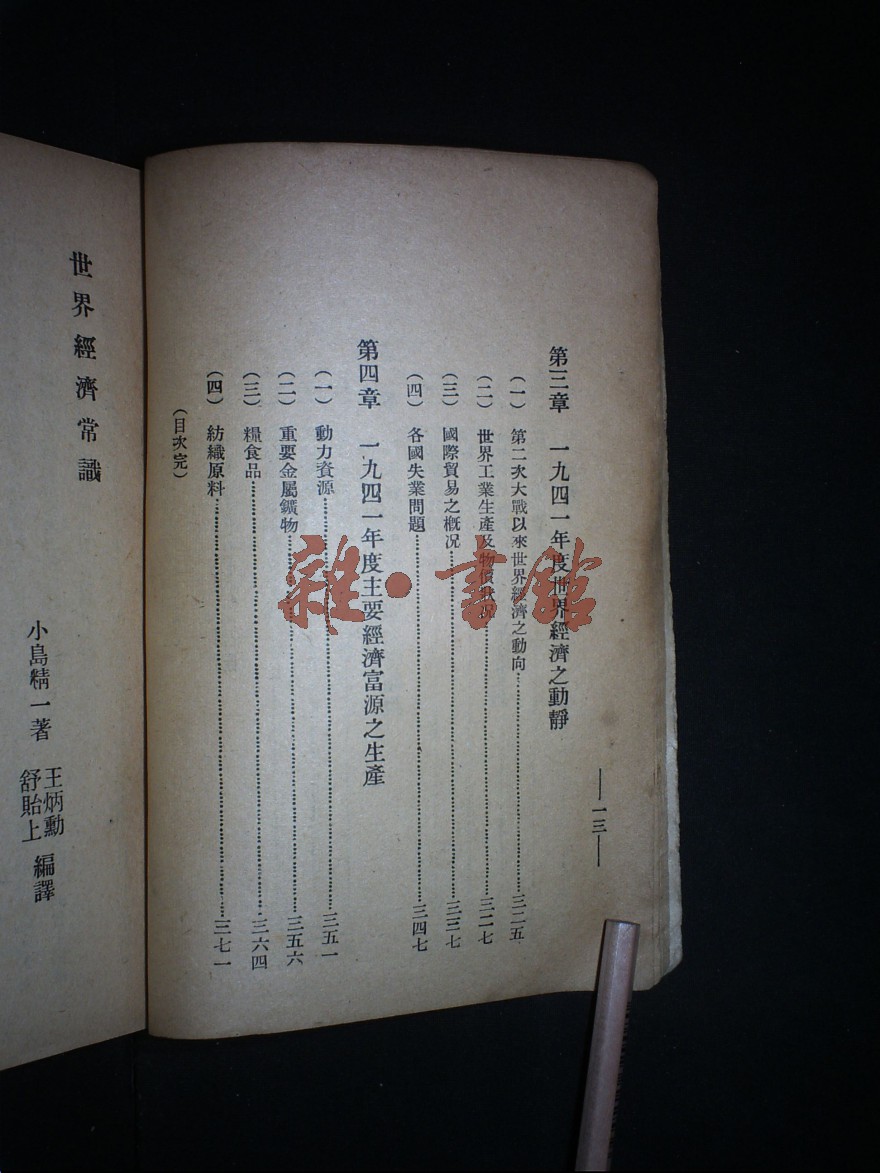 一三
第三章 一九四一年度世界經濟之動靜
(一) 第二次大戰以來世界經濟之動向……三二五
(二) 世界工業生產及物價狀況……三二七
(三) 國際貿易之概况……三三七
(四) 各國失業問題……三四七
第四章 一九四一年度主要經濟富源之生產
(一) 動力資源……三五一
(二) 重要金屬鑛物……三五六
(三) 糧食品……三六四
(四) 紡織原料……三七一
(目次完)
世界經濟常識
小島精一著 王炳勳 舒貽上 編譯
雜·書館